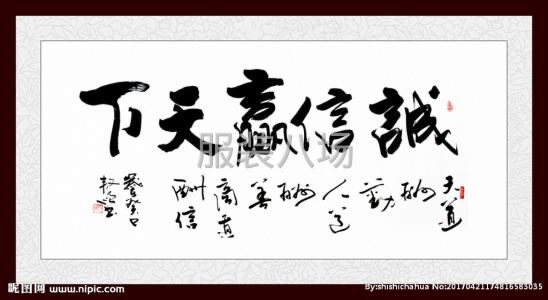 誠信贏天下
天道酬勤人道酬善商道酬信
服装八场
昵图网 www.nipic.com
By:shishichahua No:20170421174816583035